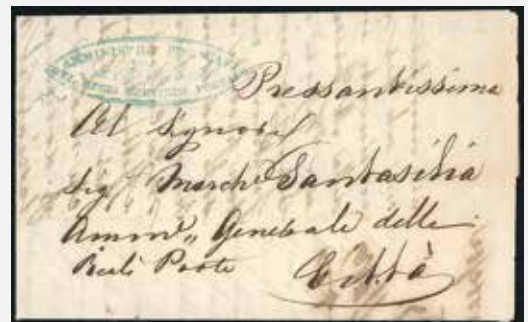 Pressantissima
Al Signore
Sig. March. Santasilia
Amm. Generale delle
Reali Poste
Città